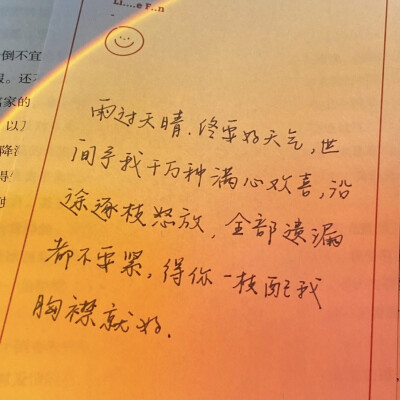 Li....e F..n
倒不宜
还
家的
以
降
得
雨过天晴，终要好天气，世
间予我千万种满心欢喜，沿
途逐枝怒放，全部遗漏
都不要紧，得你一枝配我
胸襟就好．